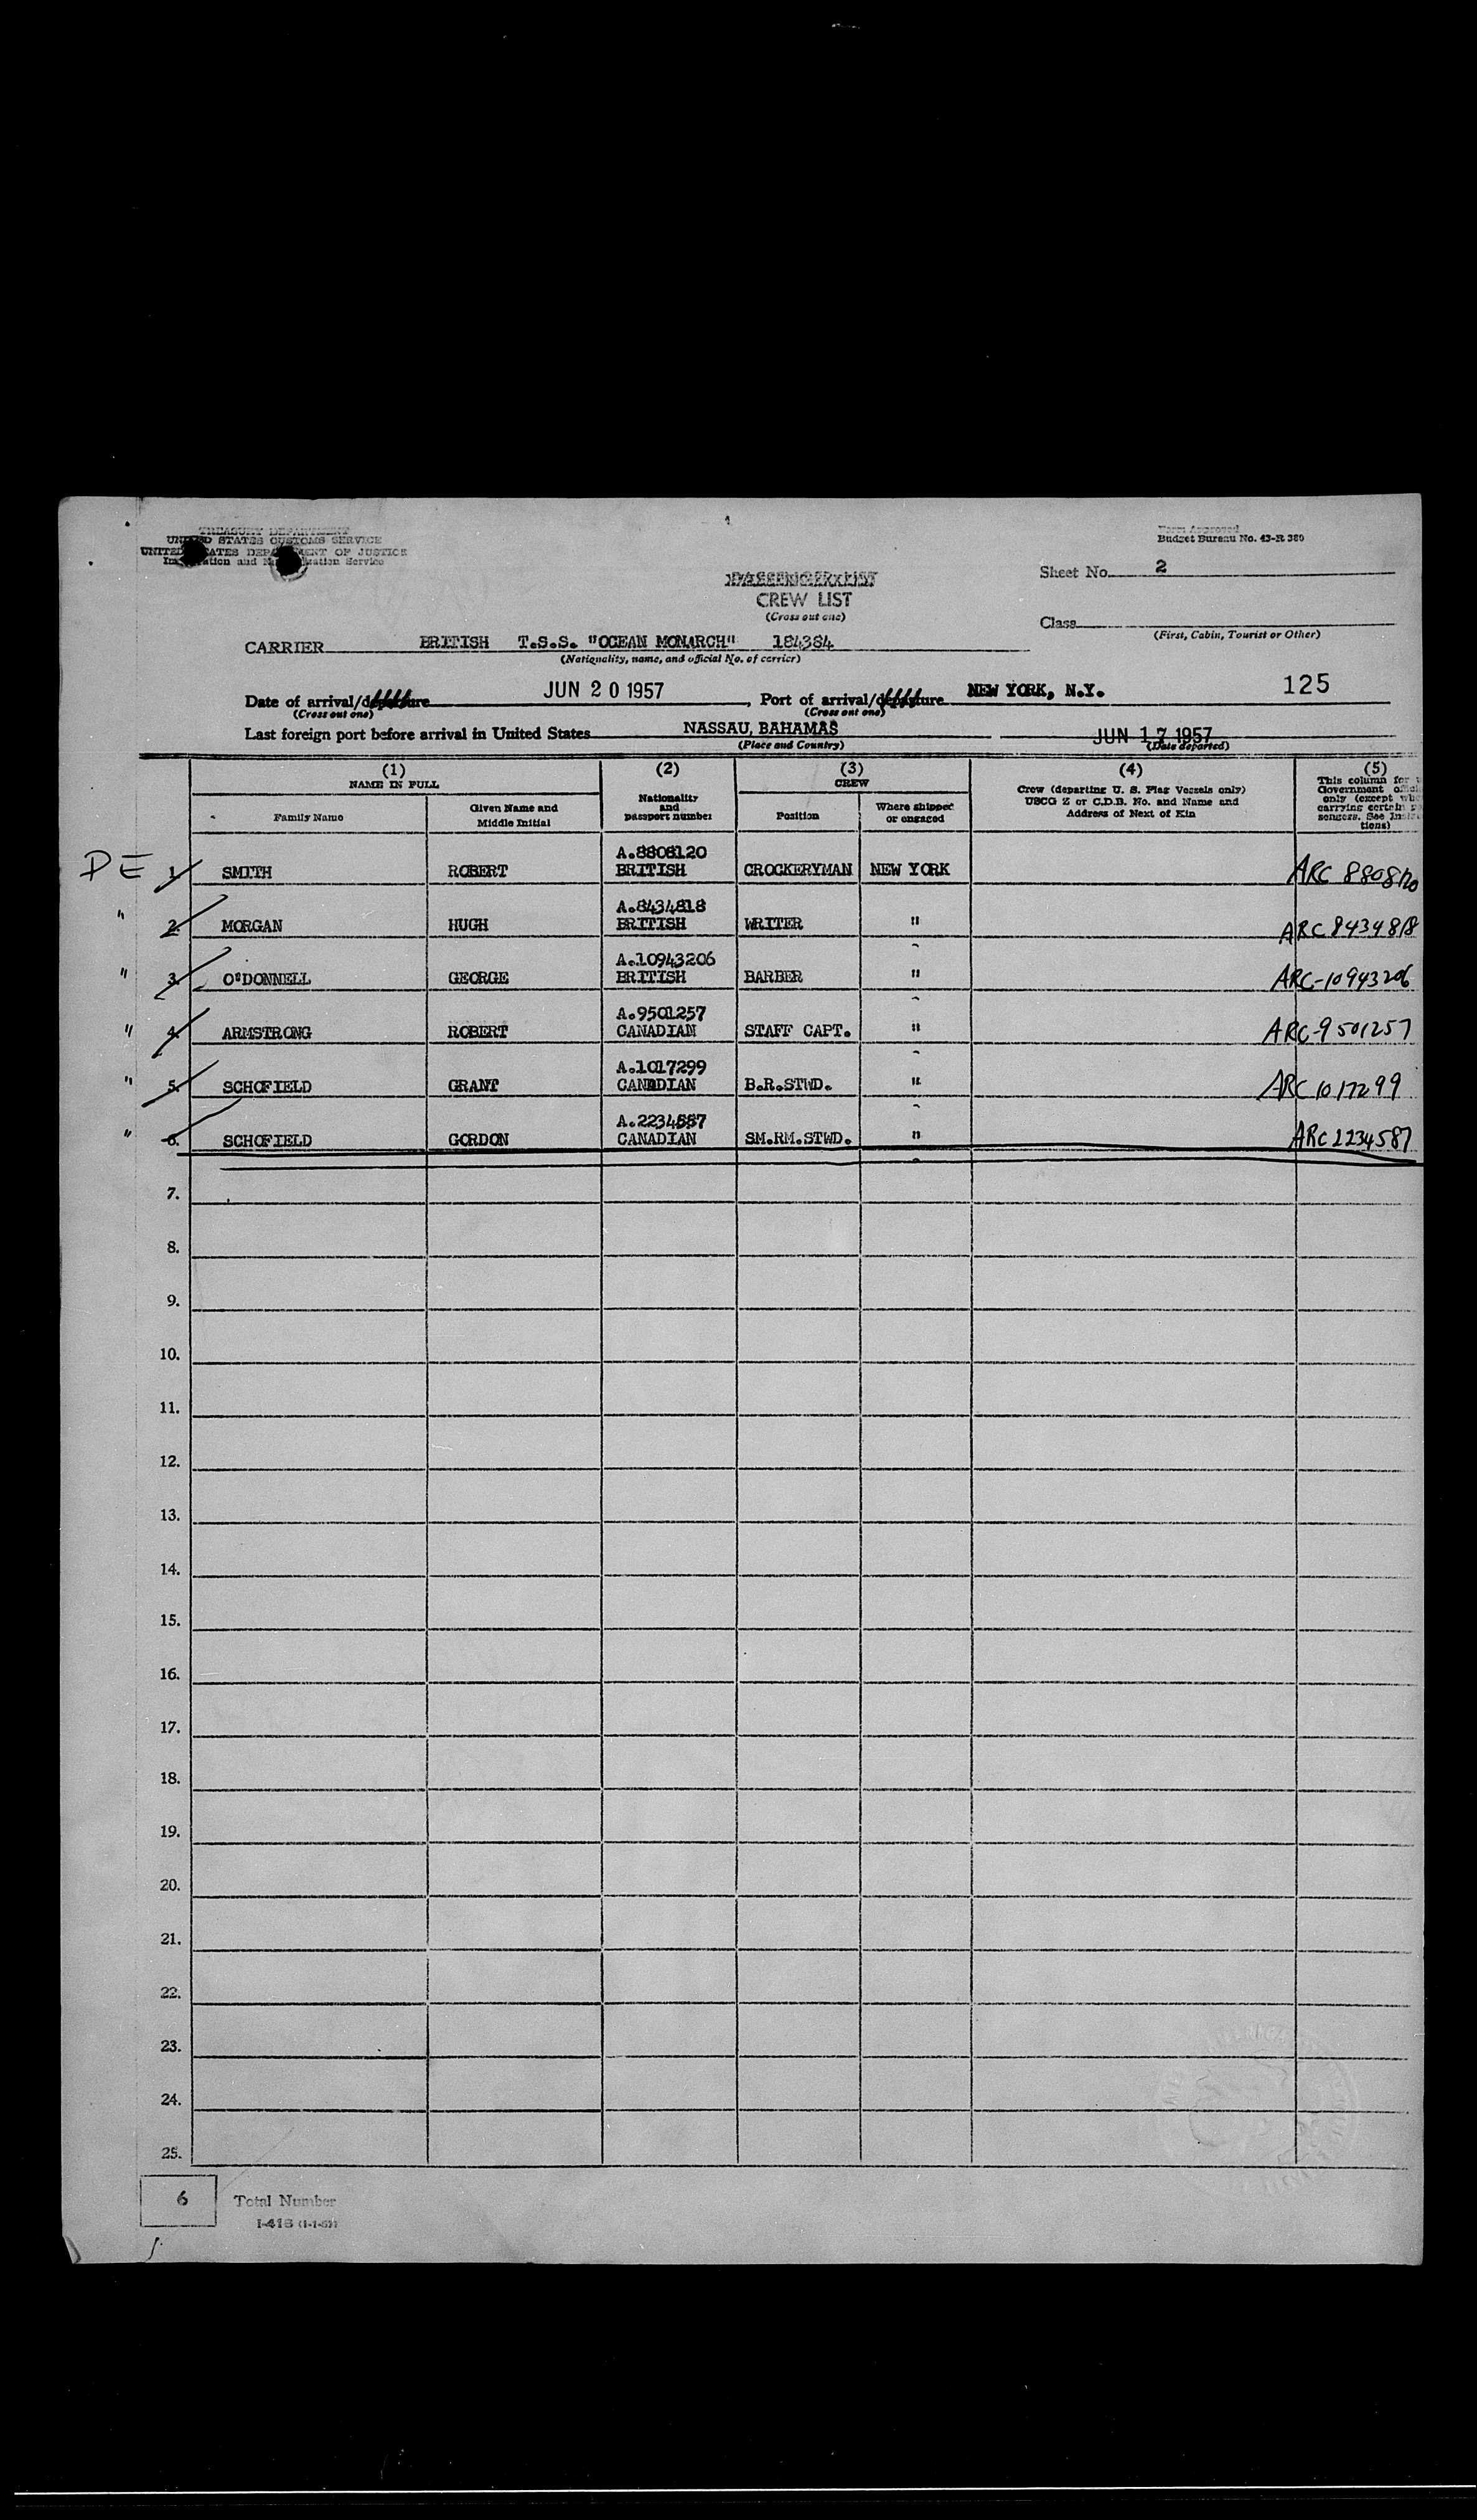 TREASURY DEPARTMENT
UNITED STATES CUSTOMS SERVICE
UNITED STATES DEPARTMENT OF JUSTICE
Immigration and Naturalization Service
Form Approved
Budget Bureau No. 43-R 380
Sheet No. 2
PASSENGER LIST
CREW LIST
(Cross out one)
Class
(First, Cabin, Tourist or Other)
CARRIER BRITISH T.S.S. "OCEAN MONARCH" 184384
(Nationality, name, and official No. of carrier)
Date of arrival/departure JUN 20 1957, Port of arrival/departure NEW YORK, N.Y. 125
(Cross out one) (Cross out one)
Last foreign port before arrival in United States NASSAU, BAHAMAS JUN 17 1957
(Place and Country) (Date departed)
(1) (2) (3) (4) (5)
NAME IN FULL
Family Name
Given Name and
Middle Initial
Nationality
and
passport number
CREW
Position
Where shipped
or engaged
Crew (departing U. S. Flag Vessels only)
USCG Z or C.D.B. No. and Name and
Address of Next of Kin
This column for
Government
only (except
carrying certain
sengers. See
tions)
A.8808120
DE 1. SMITH ROBERT BRITISH CROCKERYMAN NEW YORK ARC 8808120
A.8434818
" 2. MORGAN HUGH BRITISH WRITER " ARC 8434818
A.10943206
" 3. O'DONNELL GEORGE BRITISH BARBER " ARC-10943206
A.9501257
" 4. ARMSTRONG ROBERT CANADIAN STAFF CAPT. " ARC-9501257
A.1017299
" 5. SCHOFIELD GRANT CANADIAN B.R.STWD. " ARC 1017299
A.2234587
" 6. SCHOFIELD GORDON CANADIAN SM.RM.STWD. " ARC 2234587
7.
8.
9.
10.
11.
12.
13.
14.
15.
16.
17.
18.
19.
20.
21.
22.
23.
24.
25.
6 Total Number
I-418